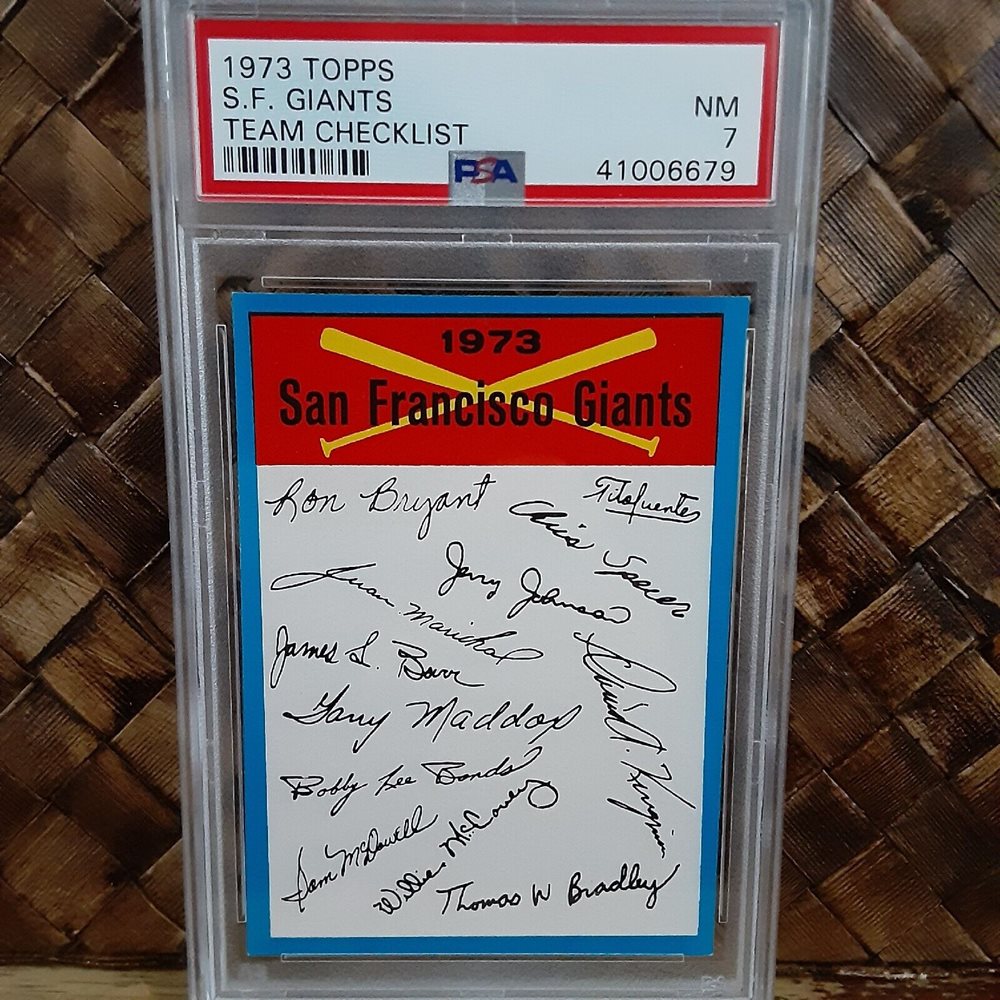 1973 TOPPS
S.F. GIANTS
TEAM CHECKLIST
NM
7
PSA
41006679
1973
San Francisco Giants
Ron Bryant
Tito Fuentes
Chris Speier
Jerry Johnson
Juan Marichal
James L. Barr
David A. Kingman
Garry Maddox
Bobby Lee Bonds
Sam McDowell
Willie McCovey
Thomas W Bradley